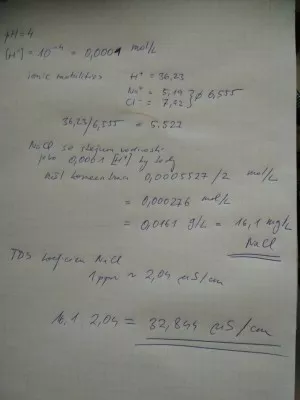 pH = 4
[H⁺] = 10⁻⁴ = 0,0001 mol/L
ionic mobilities H⁺ = 36,23
Na⁺ = 5,19
Cl⁻ = 7,92 } ⌀ 6,555
36,23/6,555 = 5.527
NaCl se stejnou vodivostí
jako 0,0001 [H⁺] by
měl 0,0005527/2 mol/L
= 0,000276 mol/L
= 0,0161 g/L = 16,1 mg/L
NaCl
TDS NaCl
1 ppm ≈ 2,04 µS/cm
16,1 2,04 = 32,844 µS/cm